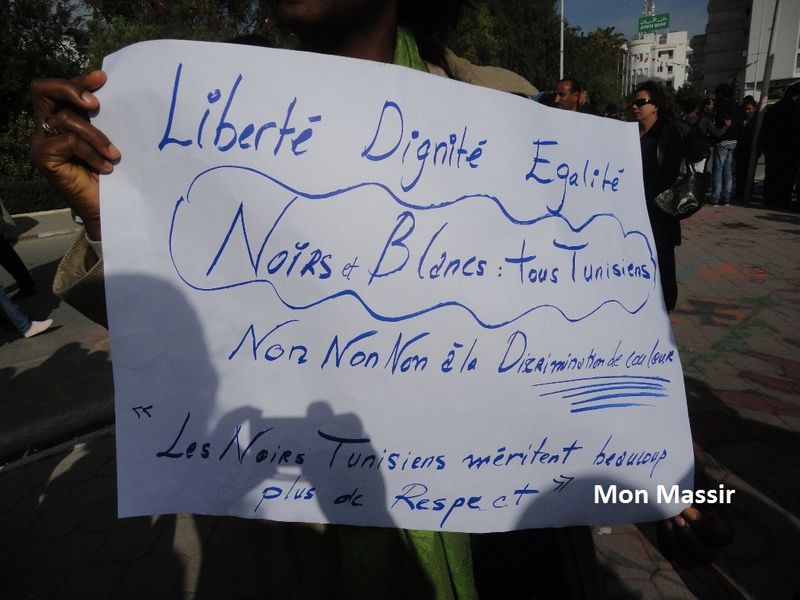 AMEN BANK
Liberté Dignité Egalité
Noirs et Blancs : tous Tunisiens
Non Non Non à la Dizrimination de couleur
"Les Noirs Tunisiens méritent beaucoup
plus de Respect"
Mon Massir